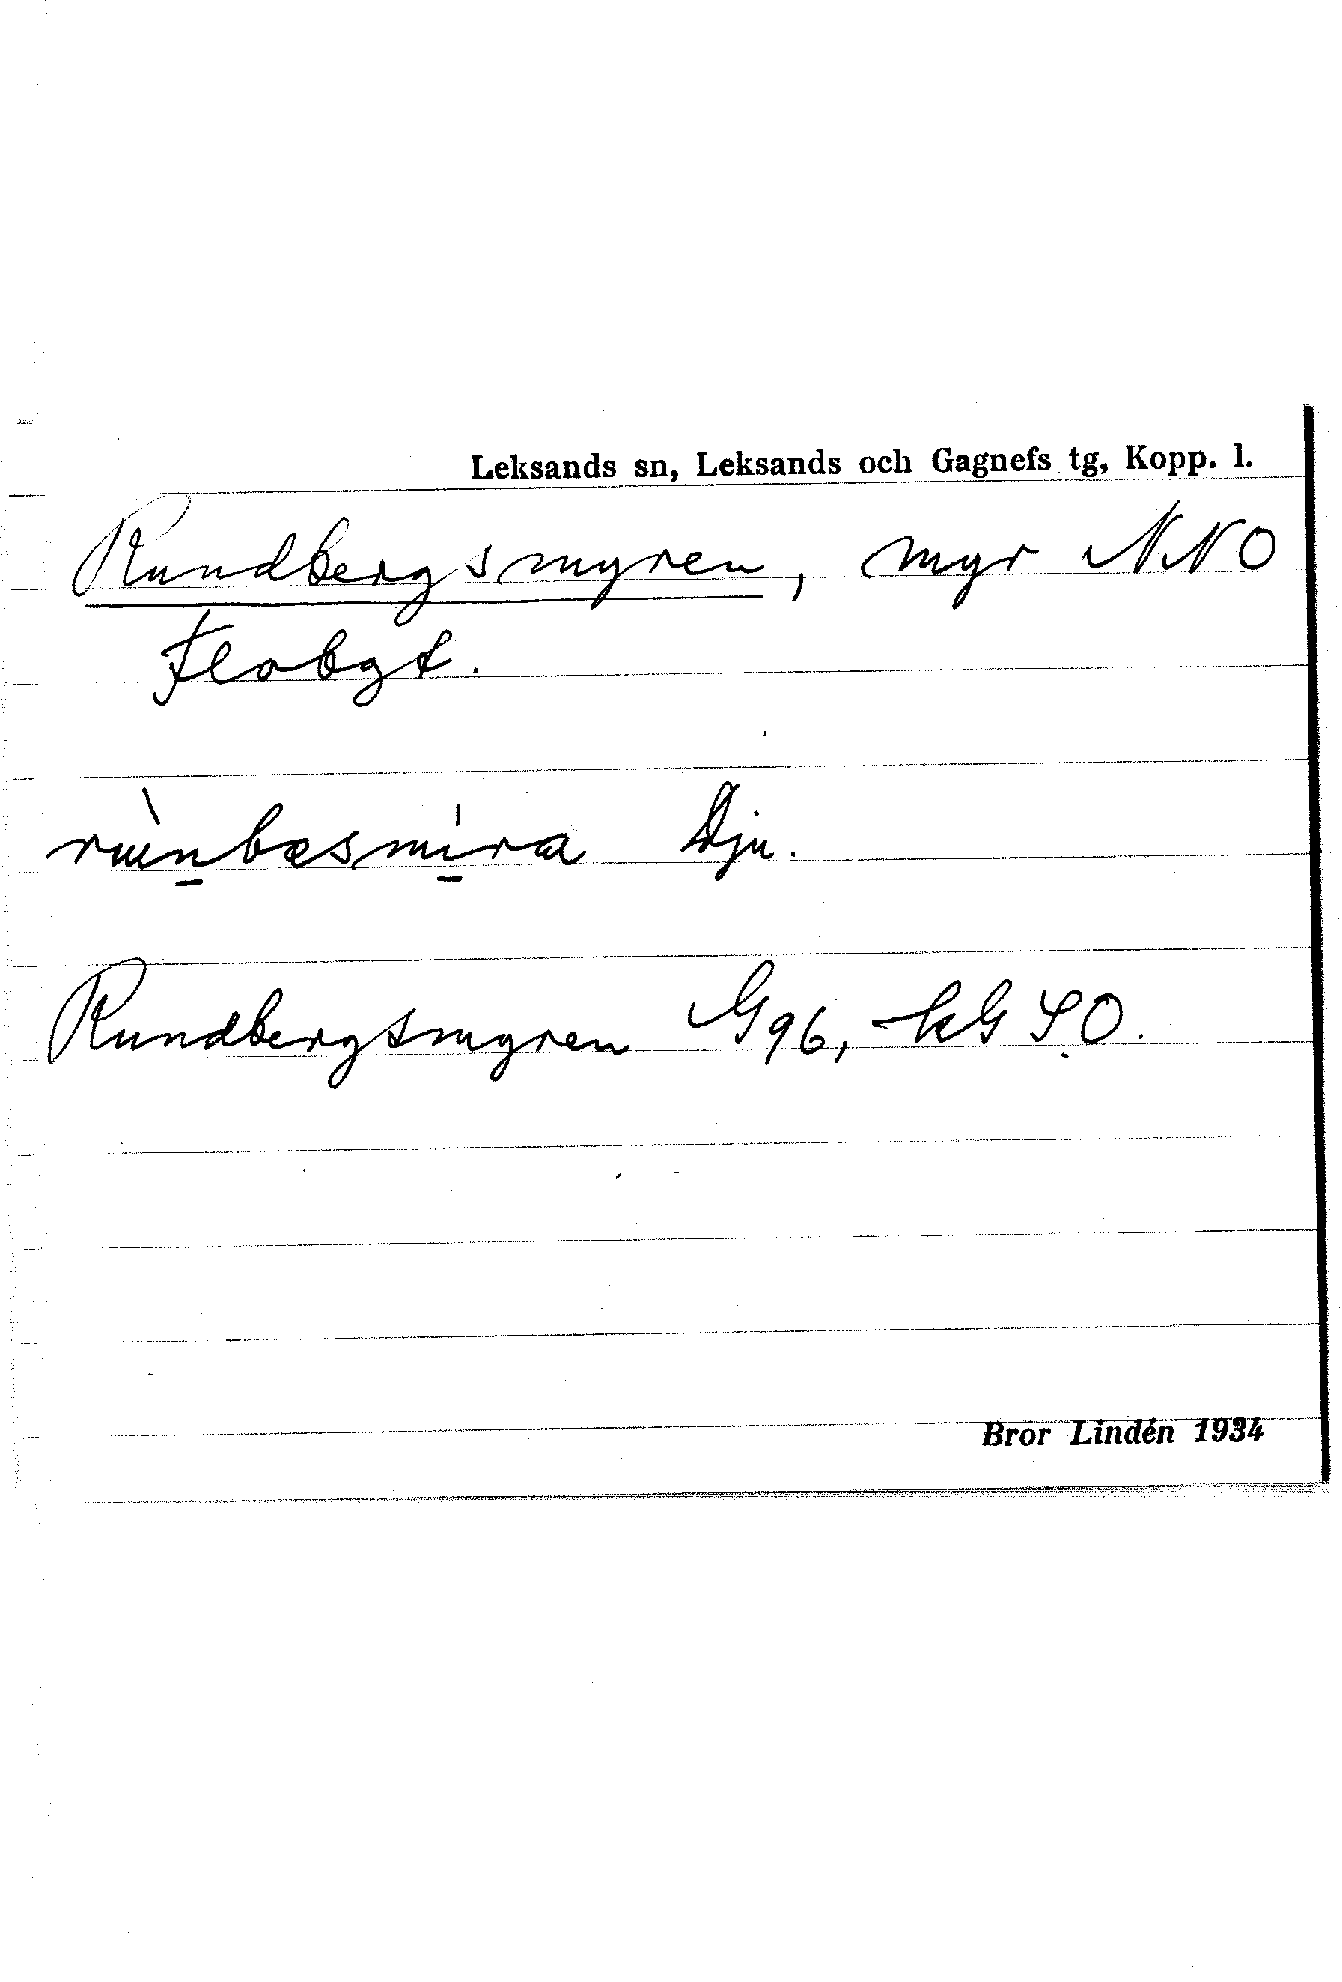 Leksands sn, Leksands och Gagnefs tg, Kopp. l.
Rundbergsmyren, myr NNO
Flobgt.
Dju.
Rundbergsmyren G96, kG SO.
Bror Lindén 1934